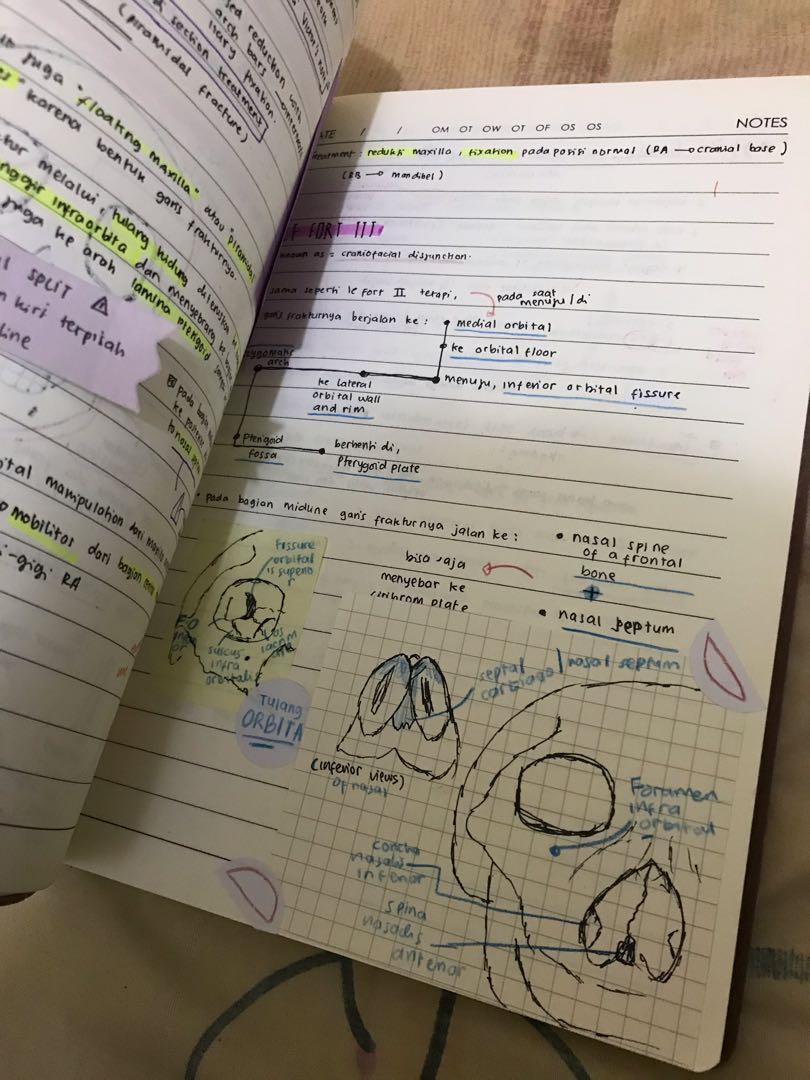 sed reduction with
arch bars
section treatment
(piramidal fracture)
juga "floating maxilla" atau "piramidal
karena bentuk garis frakturnya.
melalui, tulang hidung diteruskan ke
infraorbita dan menyebrang ke bagian
juga ke arah lamina pterigoid
SPLIT ⚠
kiri terpisah
line
pada bagian
ke posterior
manipulation dari maxilla
mobilitas dari bagian
gigi RA
OM OT OW OT OF OS OS
NOTES
treatment : reduksi maxilla, fixation pada posisi normal (RA → cranial base)
(RB → mandibel)
FORT III
known as : craniofacial disjunction.
sama seperti le fort II terapi,
pada saat
menuju/di
garis frakturnya berjalan ke :
• medial orbital
• ke orbital floor
• menuju, inferior orbital fissure
zygomatic
arch
ke lateral
orbital wall
and rim
Pterigoid
fossa
berhenti di,
Pterygoid plate
• pada bagian midline garis frakturnya jalan ke :
• nasal spine
of a frontal
bone
+
• nasal septum
bisa saja
menyebar ke
plate
Fissure
orbital
is superio
r
infra
orbitalis
Tulang
ORBITA
septal
cartilago / nasal septum
(inferior views)
of nasal
Foramen
infra
orbital
concha
nasalis
inferior
spina
nasalis
anterior